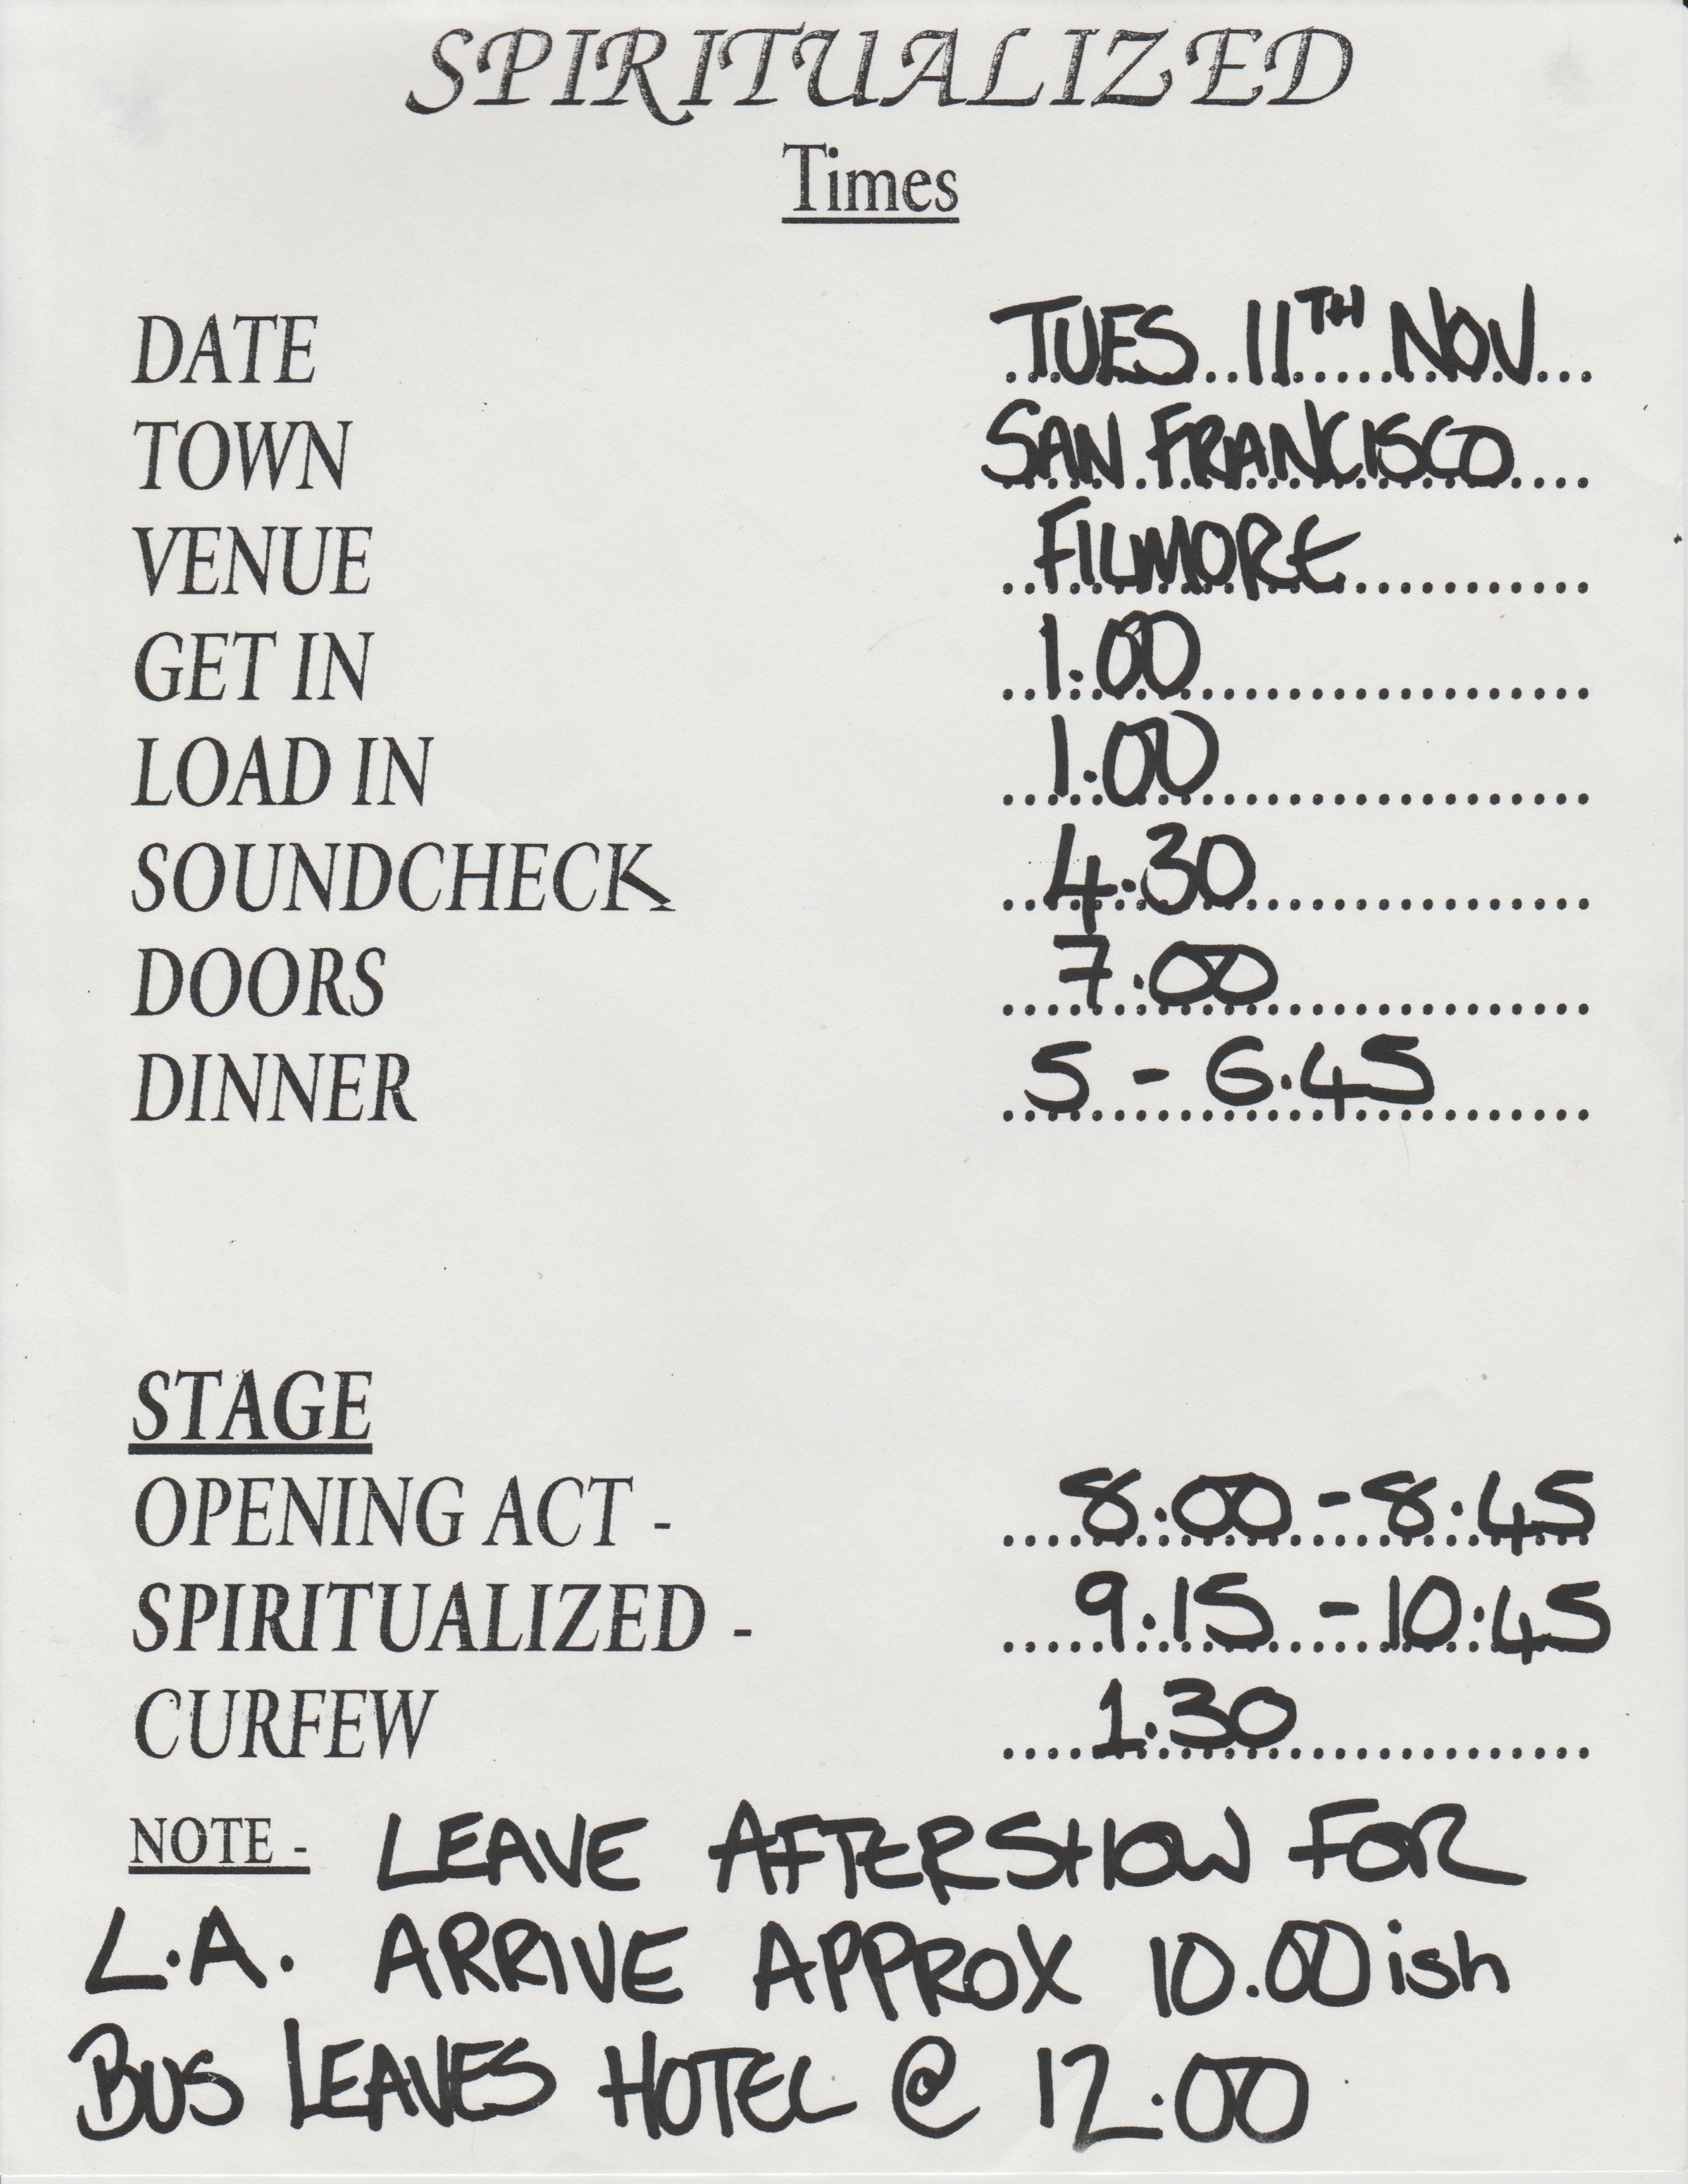 SPIRITUALIZED
Times
DATE TUES 11TH NOV
TOWN SAN FRANCISCO
VENUE FILMORE
GET IN 1.00
LOAD IN 1.00
SOUNDCHECK 4.30
DOORS 7.00
DINNER 5 - 6.45
STAGE
OPENING ACT - 8.00 - 8.45
SPIRITUALIZED - 9.15 - 10.45
CURFEW 1.30
NOTE - LEAVE AFTERSHOW FOR
L.A. ARRIVE APPROX 10.00ish
BUS LEAVES HOTEL @ 12.00